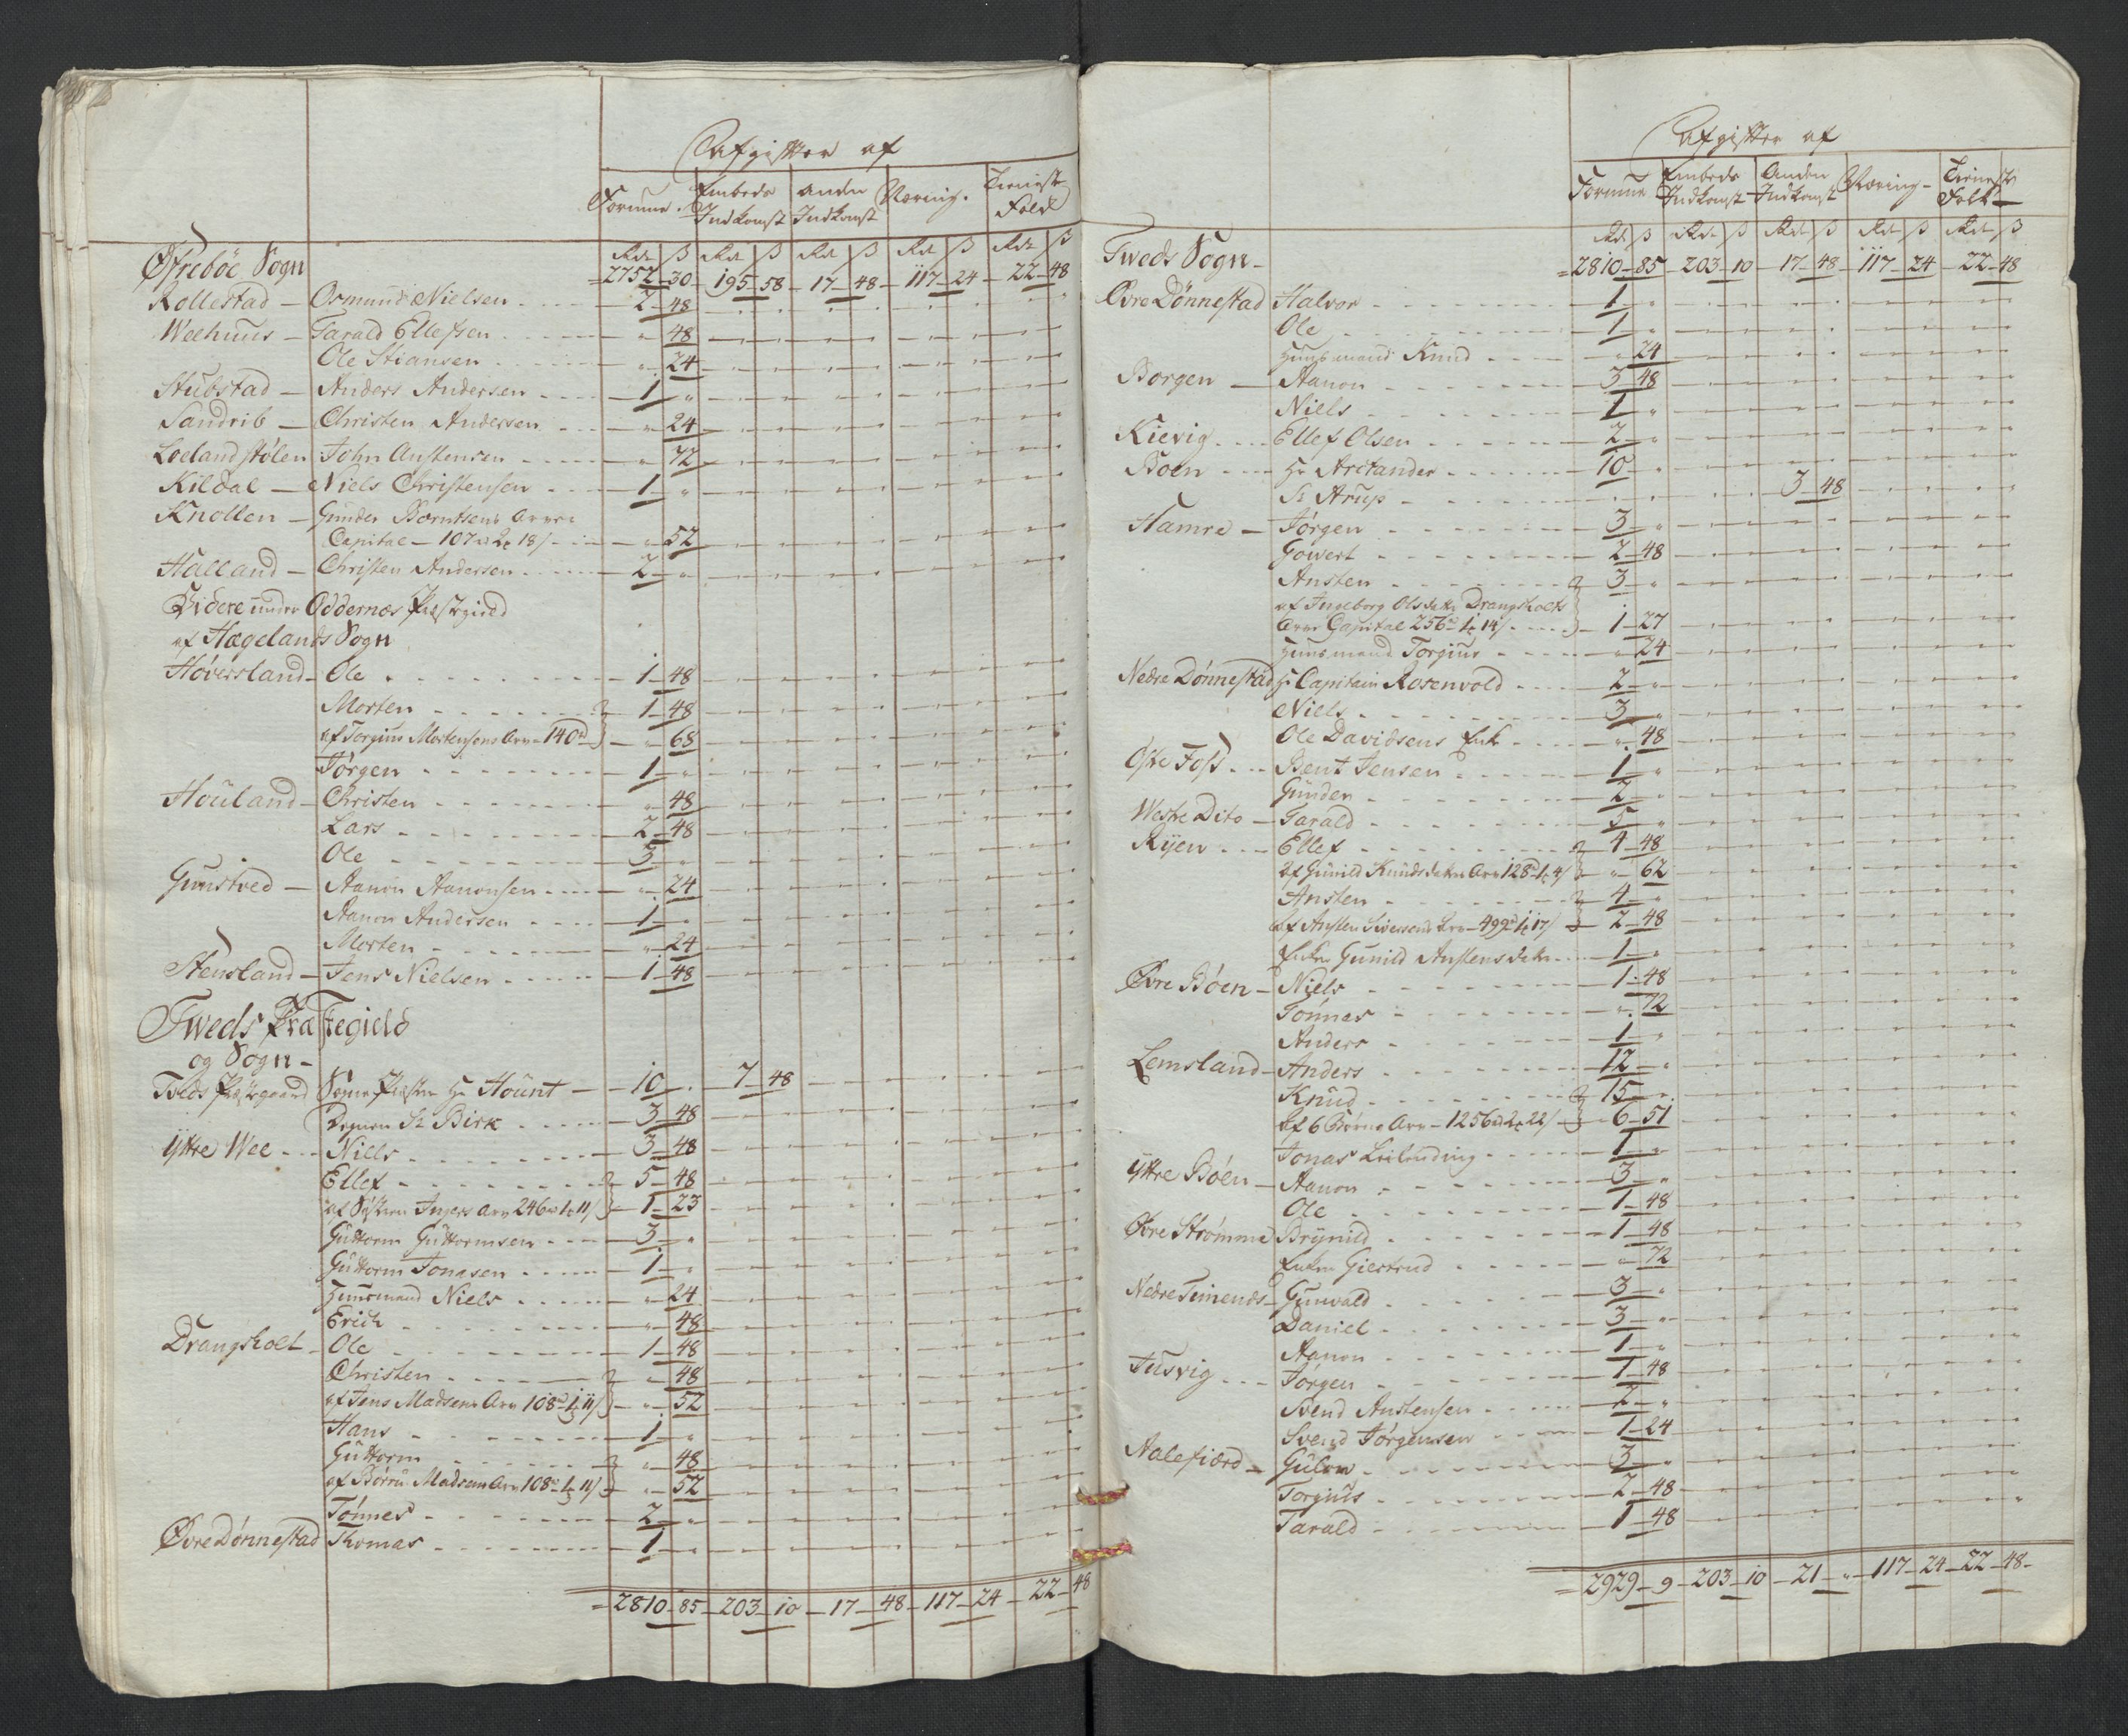 Afgifter af
Formue. Embeds Indkomst Anden Indkomst Næring. Tieniste Folk
Rdr ß Rdr ß Rdr ß Rdr ß Rdr ß
Øfrebøe Sogn = 2752 - 30 - 195 - 58 - 17 - 48 - 117 - 24 - 22 - 48
Rollestad - Osmund Nielsen - 2 - 48
Weehuus - Tarald Ellefsen - " - 48
Ole Stiansen - " - 24
Stubstad - Anders Andersen - 1 - "
Sandrib - Christen Andersen - " - 24
Loelandstølen John Austensen - " - 72
Kildal - Niels Christensen - 1 - "
Knollen - Gunder Berntsens Arve
Capital - 107 rd 2 18/ - " - 52
Halland - Christen Andersen - 2 - "
Videre under Oddernæs Præstegield
af Hægelands Sogn
Høversland - Ole - 1 - 48
Morten - 1 - 48
af Torgius Mortensens Arv - 140 rd - " - 68
Jørgen - 1 - "
Houland - Christen - " - 48
Lars - 2 - 48
Ole - 3 - "
Gunstved - Aanon Aanonsen - " - 24
Aanon Andersen - 1 - "
Morten - " - 24
Stensland - Jens Nielsen - 1 - 48
Tweds Præstegield
og Sogn -
Tveds Præstegaard Sogne Præsten Hr Hount - 10 - " - 7 - 48
Degnen Sr Birk - 3 - 48
Ÿttre Wee - Niels - 3 - 48
Ellef - 5 - 48
af Søstren Ingers Arv 246 rd 1 11/ - 1 - 23
Guttorm Guttormsen - 3 - "
Guttorm Jonasen - 1 - "
Huusmand Niels - " - 24
Erich - " - 48
Drangsholt - Ole - 1 - 48
Christen - " - 48
af Jens Madsens Arv 108 rd 1 11/ - " - 52
Hans - 1 - "
Guttorm - " - 48
af Børru Madsens Arv 108 rd 1 11/ - " - 52
Tønnes - 2 - "
Øvre Dønnestad Thomas - 1 - "
= 2810 - 85 - 203 - 10 - 17 - 48 - 117 - 24 - 22 - 48
Afgifter af
Formue Embeds Indkomst Anden Indkomst Næring - Tieneste Folk -
Rdr ß Rdr ß Rdr ß Rdr ß Rdr ß
Tweds Sogn - = 2810 - 85 - 203 - 10 - 17 - 48 - 117 - 24 - 22 - 48
Øvre Dønnestad Halvor - 1 - "
Ole - 1 - "
Huusmand Knud - " 24
Borgen - Aanon - 3 - 48
Niels - 1 - "
Kievig - Ellef Olsen - 2 - "
Boen - Hr Arctander - 10 - "
Sr Arup - 3 - 48
Hamre - Jørgen - 3 - "
Gowert - 2 - 48
Ansten - 3 - "
af Ingeborg Olsdatter Drangsholts
Arve Capital 256 rd 1 14/ - 1 - 27
Huusmand Torgius - " 24
Nedre Dønnestad Hr Capitain Rosenvold - 2 - "
Niels - 3 - "
Ole Davidsens Enke - " - 48
Østre Foss - Bent Jensen - 1 - "
Gunder - 2 - "
Westre Dito - Tarald - 5 - "
Ryen - Ellef - 4 - 48
af Gunild Knudsdatters Arv 128 rd 1 4/ - " 62
Ansten - 4 - "
af Ansten Sivertsens Arv - 499 rd 1 17/ - 2 - 48
Enken Gunild Anstensdatter - 1 - "
Øvre Bøen - Niels - 1 - 48
Tønnes - " - 72
Anders - 1 - "
Lemsland - Anders - 12 - "
Knud - 15 - "
af 6 Børns Arv - 1256 rd 2 22/ - 6 - 51
Jonas Leilending - 1 - "
Ÿttre Bøen - Aanon - 3 - "
Ole - 1 - 48
Øvre Strømme Brynild - 1 - 48
Enken Giertrud - " - 72
Nedre Timenes - Gunvald - 3 - "
Daniel - 3 - "
Aanon - 1 - "
Jusvig - Jørgen - 1 - 48
Svend Anstensen - 2 - "
Svend Jørgensen - 1 - 24
Aalefiærd - Gulow - 3 - "
Torgius - 2 - 48
Tarald - 1 - 48
= 2929 - 9 - 203 - 10 - 21 - " - 117 - 24 - 22 - 48 -